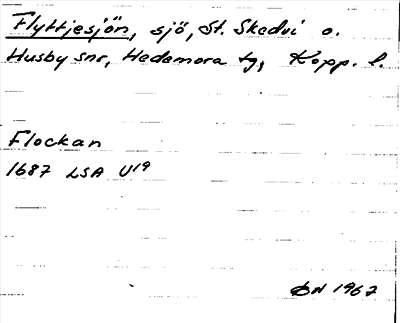 Flyttjesjön, sjö, St. Skedvi o.
Husby snr, Hedemora tg, Kopp. l.
Flockan
1687 LSA U19
ÖN 1967